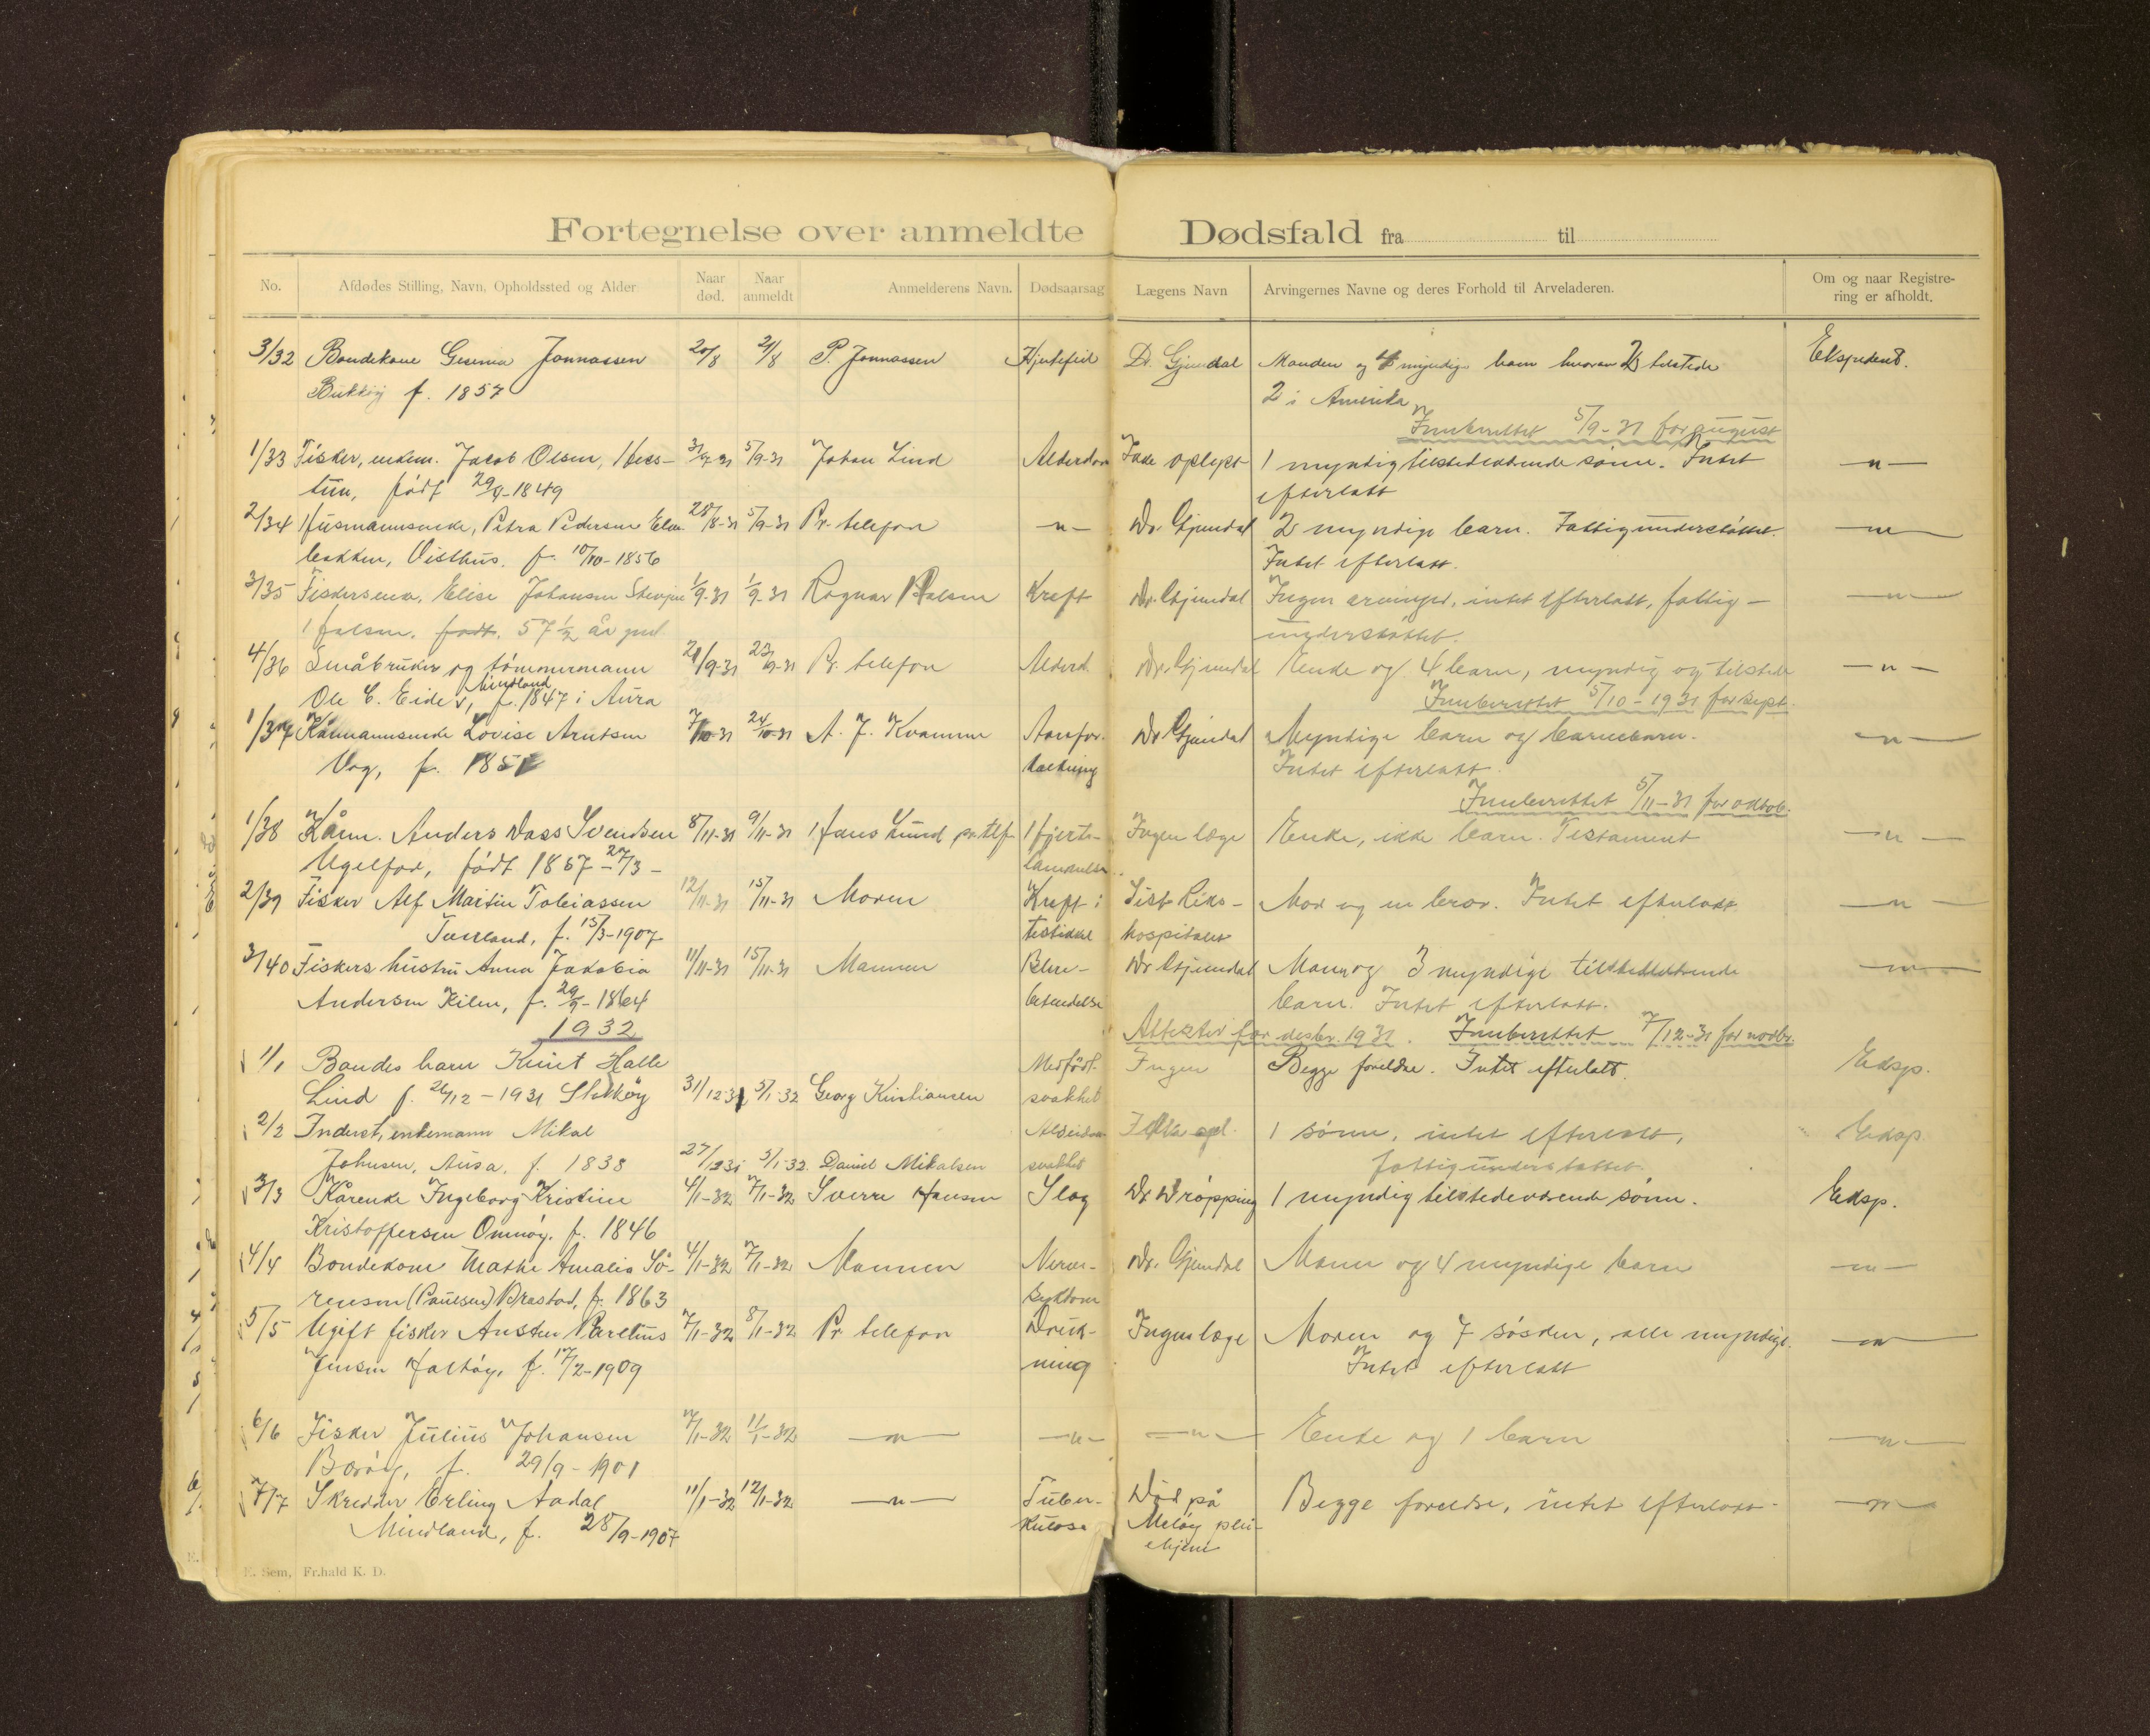 Fortegnelse over anmeldte Dødsfald fra til
No. Afdødes Stilling, Navn, Opholdssted og Alder. Naar død. Naar anmeldt Anmelderens Navn. Dødsaarsag Lægens Navn Arvingernes Navne og deres Forhold til Arveladeren. Om og naar Registrering er afholdt.
3/32 Bondekone Gesema Jonnassen 20/8 21/8 P. Jonnassen Hjertefeil Dr. Gjendal Manden og 4 myndige barn hvorav 2 tilstede Ekspedert.
Bukkøy f. 1857 2 i Amerika
Innberettet 5/9-31 for august
1/33 Fisker, enkem. Jacob Olsen, Hess- 5/9-31 Johan Lind Alderdom Ikke oplyst 1 myndig tilstedeværende sønn. Intet -"-
tun, født 1849 efterlatt
2/34 Husmannsenke, Petra Pedersen 28/8-31 5/9-31 Pr. telefon -"- Dr. Gjendal 2 myndige barn. Fattigunderstøttet. -"-
bakken, Visthus. f. 10/10-1856 Intet efterlatt.
3/35 Fiskersenke, Elise Johansen 1/9-31 1/9-31 Ragnar Kreft Dr. Gjendal Ingen arvinger, intet efterlatt, fattig- -"-
født. 57 1/2 år gml. understøttet.
4/36 Småbruker og tømmermann 21/9-31 23/9-31 Pr. telefon Alderd. Dr. Gjendal Enke og 4 barn, myndig og tilstede -"-
Mindland
Ole C. Eide, f. 1847 i Aura Innberettet 5/10-1931 for sept.
1/37 Kårmannsenke Lovise Arntsen 7/10-31 24/10-31 A. J. Kvamme Aarefor- Dr. Gjendal Myndige barn og barnebarn. -"-
Vag, f. 185 kalkning Intet efterlatt.
Innberettet 5/11-31 for oktob.
1/38 Kårm. Anders Dass Svendsen 8/11-31 9/11-31 Hans Lund pr. tlf Hjerte- Ingen læge Enke, ikke barn. Testament -"-
født 1867 - 27/3 - lammelse
2/39 Fisker Alf Martin Tobiassen 12/11-31 15/11-31 Moren Kreft i Sist Riks- Mor og en bror. Intet efterlatt -"-
f. 15/3-1907 testikkel hospitalet
3/40 Fiskers hustru Anna Jakobia 11/11-31 15/11-31 Mannen Dr. Gjendal Mann og 3 myndige tilstedeværende -"-
Andersen Kilen, f. 1864 betendelse barn. Intet efterlatt.
1932 Attester for desbr. 1931. Innberettet 7/12-31 for novbr.
1/1 Bondes barn Knut Halle Medfødt Ingen Begge foreldre. Intet efterlatt. Eksp.
Lind f. 26/12-1931 31/12-31 5/1-32 Georg Kristiansen svakhet
2/2 Inderst, enkemann Mikal Alderdoms Ikke opl. 1 sønn, intet efterlatt, Eksp.
Johnsen, Ausa, f. 1838 27/12 31 5/1-32. Daniel Mikalsen svakhet fattigunderstøttet.
3/3 Kårenke Ingeborg Kristine 4/1-32 7/1-32 Sverre Hansen Slag Dr. Drøpping 1 myndig tilstedeværende sønn. Eksp.
Kristoffersen Omnøy. f. 1846
4/4 Bondekone Mathe Amalie Sø- 4/1-32 7/1-32 Mannen Nerve- Dr. Gjendal Mann og 4 myndige barn -"-
rensen (Paulsen) Brastad, f. 1863
5/5 Ugift fisker Austen Parelius 7/1-32 8/1-32 Pr telefon Druk- Ingen læge Moren og 7 søsken, alle myndige. -"-
Jensen f. 17/2-1909 ning Intet efterlatt
6/6 Fisker Julius Johansen 7/1-32 11/1-32 -"- -"- -"- Enke og 1 barn -"-
Borøy, f. 29/9-1901
7/7 Skredder Erling Aadal 11/1-32 12/1-32 -"- Tuber- Død på Begge foreldre, intet efterlatt -"-
Mindland, f. 28/9-1907 kulose Meløy plei-
ehjem
E. Sem, Fr.hald K. D.